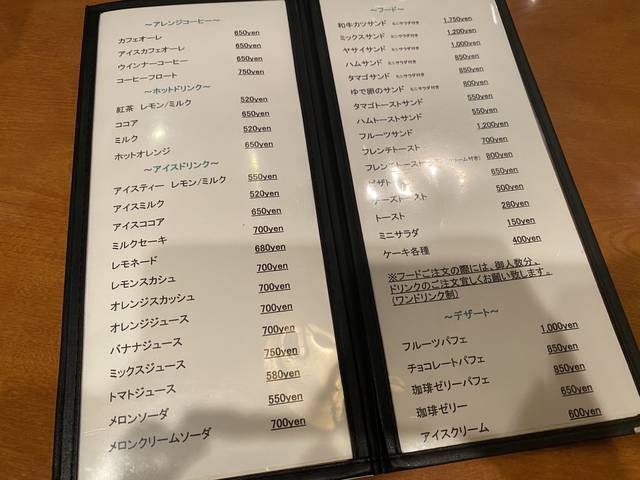 ~アレンジコーヒー~
カフェオーレ 650yen
アイスカフェオーレ 650yen
ウインナーコーヒー 650yen
コーヒーフロート 750yen
~ホットドリンク~
紅茶 レモン/ミルク 520yen
ココア 650yen
ミルク 520yen
ホットオレンジ 650yen
~アイスドリンク~
アイスティー レモン/ミルク 550yen
アイスミルク 520yen
アイスココア 650yen
ミルクセーキ 700yen
レモネード 680yen
レモンスカシュ 700yen
オレンジスカッシュ 700yen
オレンジジュース 700yen
バナナジュース 700yen
ミックスジュース 750yen
トマトジュース 580yen
メロンソーダ 550yen
メロンクリームソーダ 700yen
~フード~
和牛カツサンド ミニサラダ付き 1,750yen
ミックスサンド ミニサラダ付き 1,200yen
ヤサイサンド ミニサラダ付き 1,000yen
ハムサンド ミニサラダ付き 850yen
タマゴサンド ミニサラダ付き 850yen
ゆで卵のサンド ミニサラダ付き 800yen
タマゴトーストサンド 550yen
ハムトーストサンド 550yen
フルーツサンド 1,200yen
フレンチトースト 700yen
フレンチトースト クリーム付き) 800yen
ピザトースト 650yen
チーズトースト 500yen
トースト 280yen
ミニサラダ 150yen
ケーキ各種 400yen
※フードご注文の際には、御人数分、
ドリンクのご注文宜しくお願い致します。
(ワンドリンク制)
~デザート~
フルーツパフェ 1,000yen
チョコレートパフェ 850yen
珈琲ゼリーパフェ 850yen
珈琲ゼリー 650yen
アイスクリーム 600yen